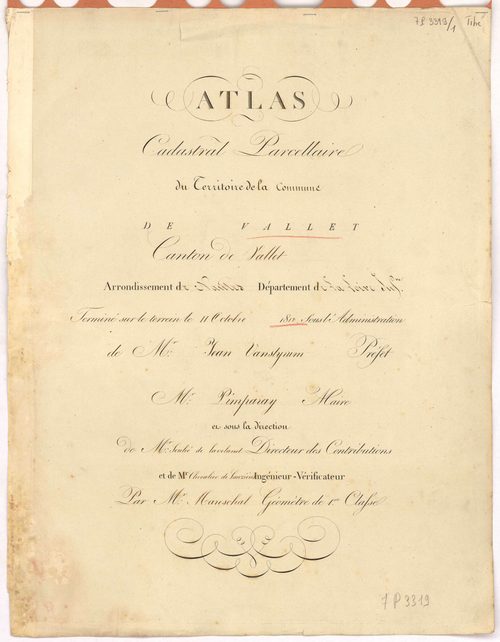 7 P 3313/1 Titre
ATLAS
Cadastral Parcellaire
du Territoire de la Commune
DE VALLET
Canton de Vallet
Arrondissement de Nantes Département de La Loire Infre
Terminé sur le terrain le 11 Octobre Sous l'Administration
de Mr. Jean Vanstyrum Préfet
Mr. Pimparay Maire
et sous la direction
de Mr. Directeur des Contributions
et de Mr Chevalier de Ingénieur-Vérificateur
Par Mr. Mareschal Géomètre de 1re Classe
7 P 3319